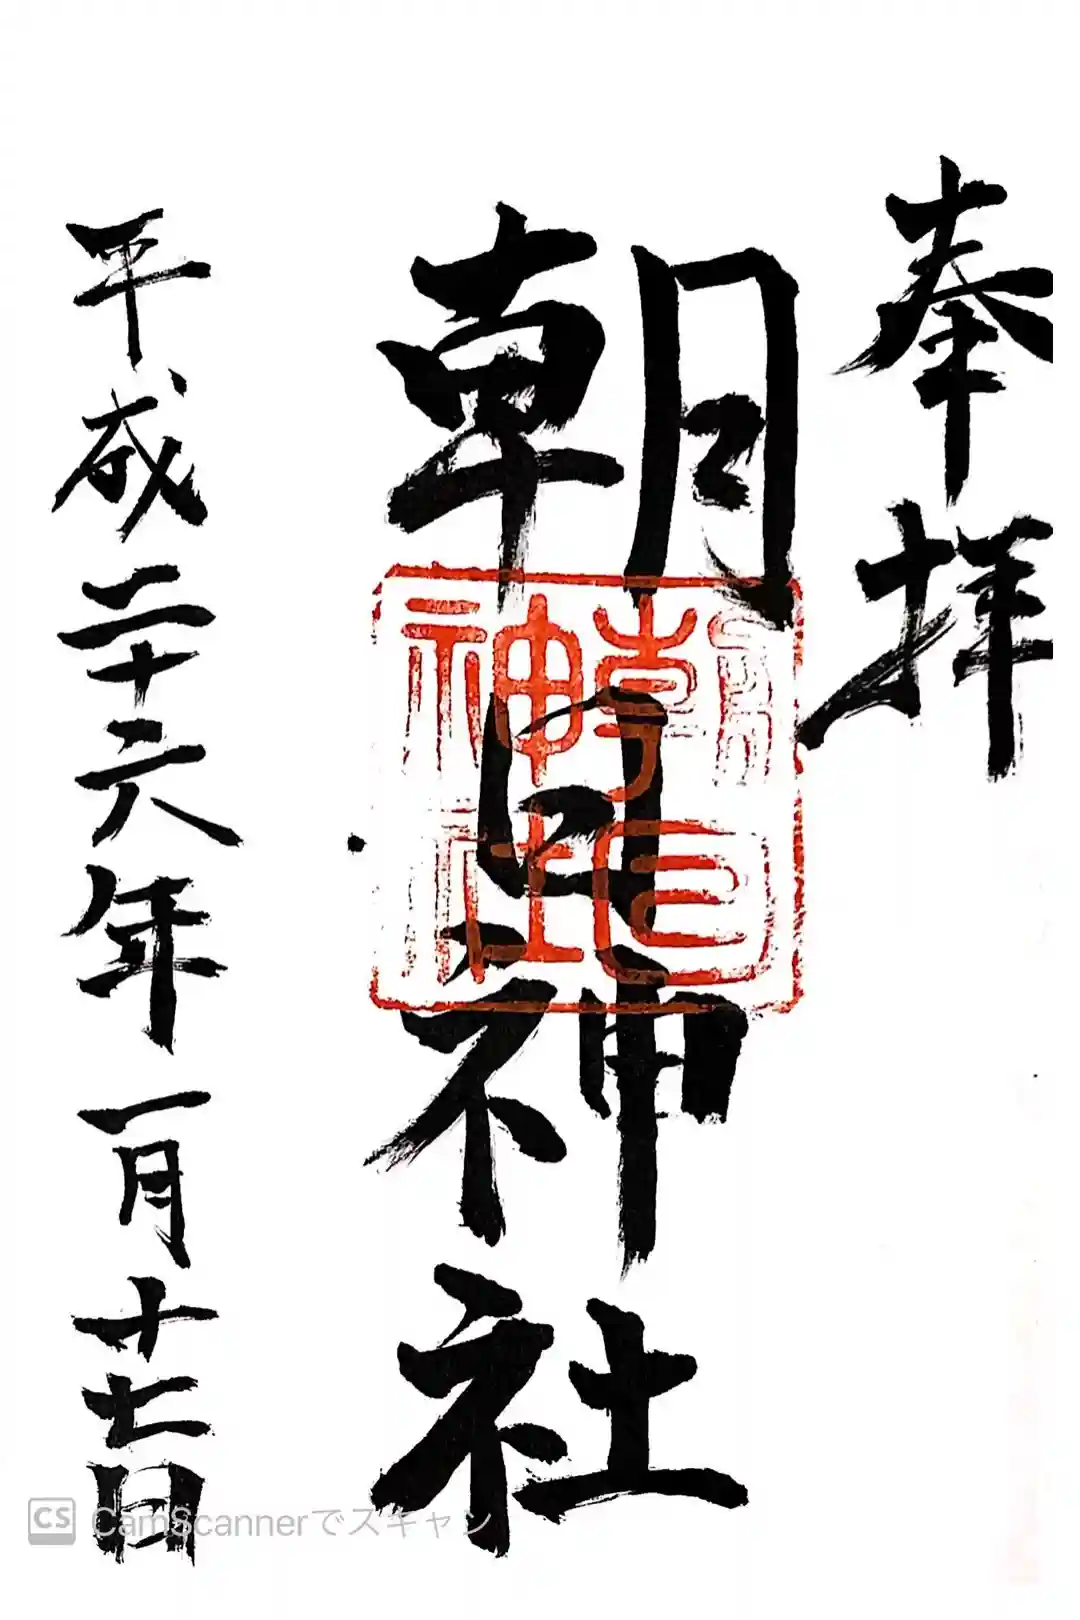 奉拝
朝日神社
朝日神社
平成二十六年一月十七日
CS CamScannerでスキャン